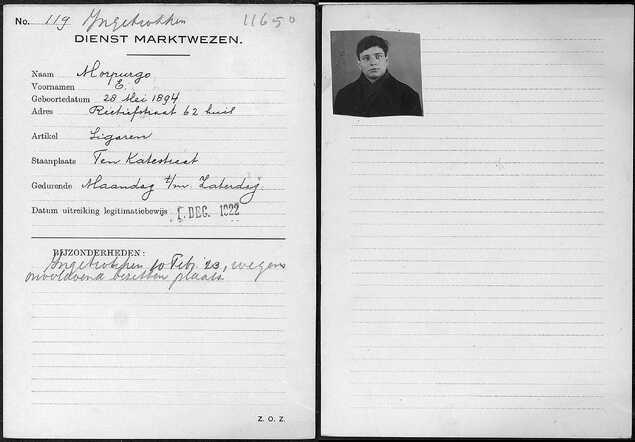 No. 119 Ingetrokken 11650
DIENST MARKTWEZEN.
Naam Morpurgo
Voornamen E.
Geboortedatum 28 Mei 1894
Adres Rietiefstraat 62 huis
Artikel Sigaren
Staanplaats Ten Katestraat
Gedurende Maandag t/m. Zaterdag
Datum uitreiking legitimatiebewijs 1. DEC. 1922
BIJZONDERHEDEN:
Ingetrokken 10 Feb. 23, wegens
onvoldoend bezetten plaats
Z. O. Z.